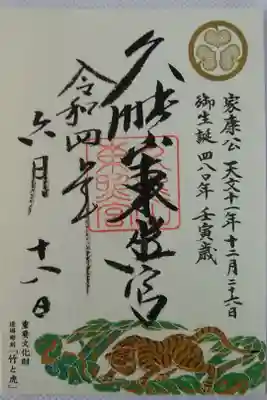 家康公 天文十一年十二月二十六日
御生誕 四八〇年 壬寅歳
久能山東照宮
令和四年
六月十八日
重要文化財
彫刻「竹と虎」